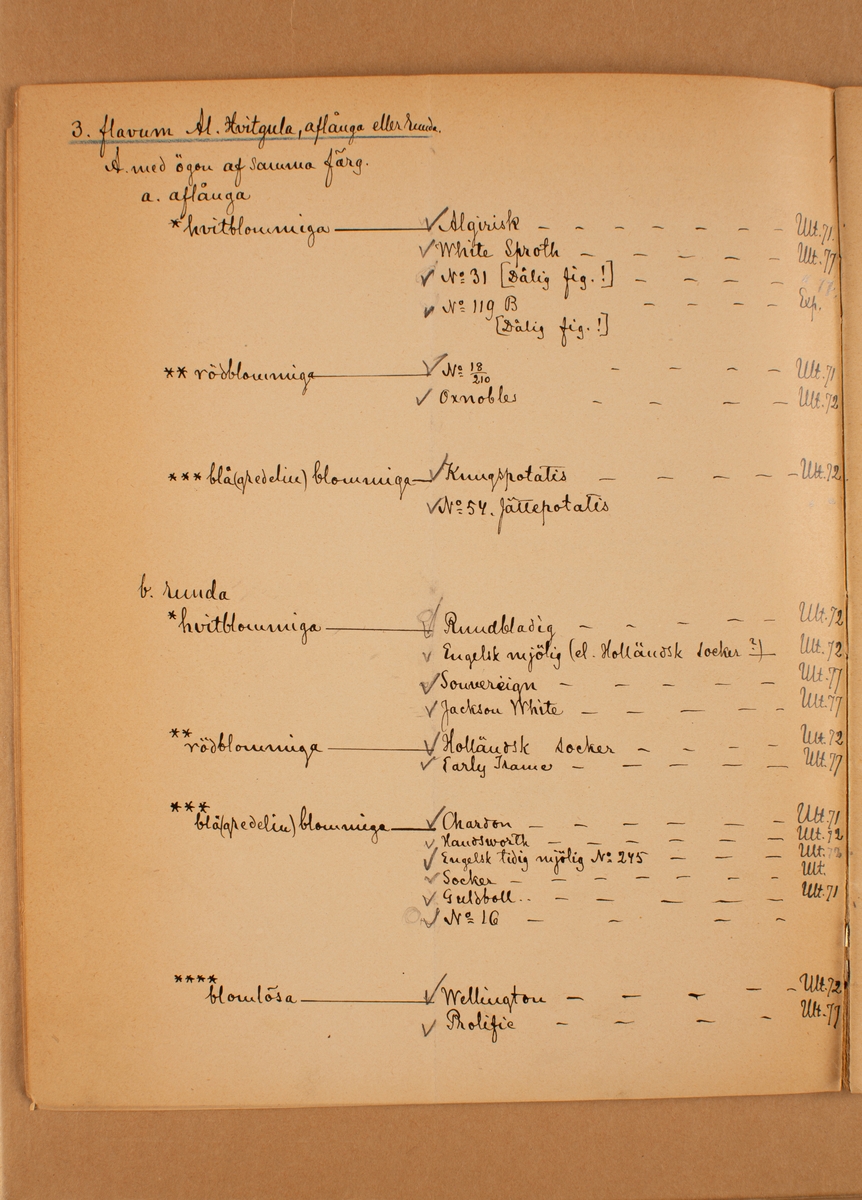 3. flavum Al. Hvitgula, aflånga eller runda.
A. med ögon af samma färg.
a. aflånga
*hvitblommiga — ✓ Algirisk - - - - - - Utt.71.
✓ White Sproth - - - - Utt.77
✓ No 31 [Dålig fig.!] - - - -
✓ No 119 B - - - Exp.
[Dålig fig.!]
** rödblommiga — ✓ No 18/210 - - - - Utt.71
✓ Oxnobles - - - - Utt.72
*** blå(gredelin) blommiga — ✓ Kungspotatis - - - - - Utt.72
✓ No 54. Jättepotatis
b. runda
*hvitblommiga — ✓ Rundbladig - - - - - Utt.72
✓ Engelsk mjölig (el. Holländsk socker?) — Utt.72
✓ Souvereign - - - - - Utt.77
✓ Jackson White - - - - Utt.77
** rödblommiga — ✓ Holländsk socker - - - - Utt.72
✓ Early Frame - - - - - Utt.77
*** blå(gredelin) blommiga — ✓ Chardon - - - - - Utt.71
✓ Handsworth - - - - - Utt.72
✓ Engelsk tidig mjölig No 245 - - - Utt.72
✓ Socker - - - - - - Utt.
✓ Guldboll.. - - - - - Utt.71
✓ No 16 - - - -
**** blomlösa — ✓ Wellington - - - - - Utt.72
✓ Prolific - - - - Utt.77